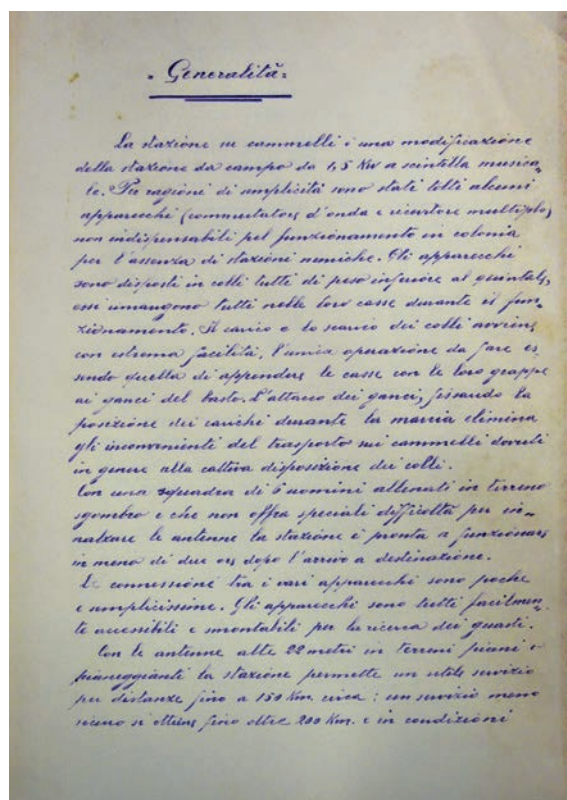 "Generalità"
La stazione su cammelli è una modificazione
della stazione da campo da 1,5 Kw a scintilla musica-
le. Per ragioni di semplicità sono stati tolti alcuni
apparecchi (commutatore d'onda e ricevitore multiplo)
non indispensabili pel funzionamento in colonia
per l'assenza di stazioni nemiche. Gli apparecchi
sono disposti in colli tutti di peso inferiore al quintale,
essi rimangono tutti nelle loro casse durante il fun-
zionamento. Il carico e lo scarico dei colli avviene
con estrema facilità, l'unica operazione da fare es-
sendo quella di appendere le casse con le loro grappe
ai ganci del basto. L'attacco dei ganci, fissando la
posizione dei carichi durante la marcia elimina
gli inconvenienti del trasporto sui cammelli dovuti
in genere alla cattiva disposizione dei colli.
Con una squadra di 6 uomini allenati in terreno
sgombro e che non offra speciali difficoltà per in-
nalzare le antenne la stazione è pronta a funzionare
in meno di due ore dopo l'arrivo a destinazione.
Le connessioni tra i vari apparecchi sono poche
e semplicissime. Gli apparecchi sono tutti facilmen-
te accessibili e smontabili per la ricerca dei guasti.
Con le antenne alte 22 metri in terreni piani e
pianeggianti la stazione permette un utile servizio
per distanze fino a 150 Km. circa: un servizio meno
sicuro si ottiene fino oltre 200 Km. e in condizioni